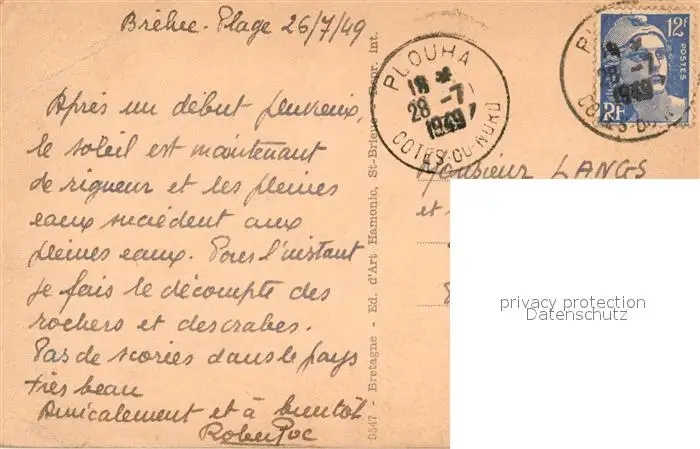 Bréhec-Plage 26/7/49
Après un début pluvieux,
le soleil est maintenant
de rigueur et les pleines
eaux succèdent aux
pleines eaux. Pour l'instant
je fais le décompte des
rochers et des crabes.
Pas de scories dans le pays
très beau
Amicalement et à bientôt
0547 - Bretagne - Ed. d'Art Hamonic, St-Brieuc - int.
PLOUHA
18 *
28 -7
1949
COTES-DU-NORD
12F
POSTES
RF
PL
28 -7
1949
COTES-DU-N
Monsieur LANGS
et
privacy protection
Datenschutz